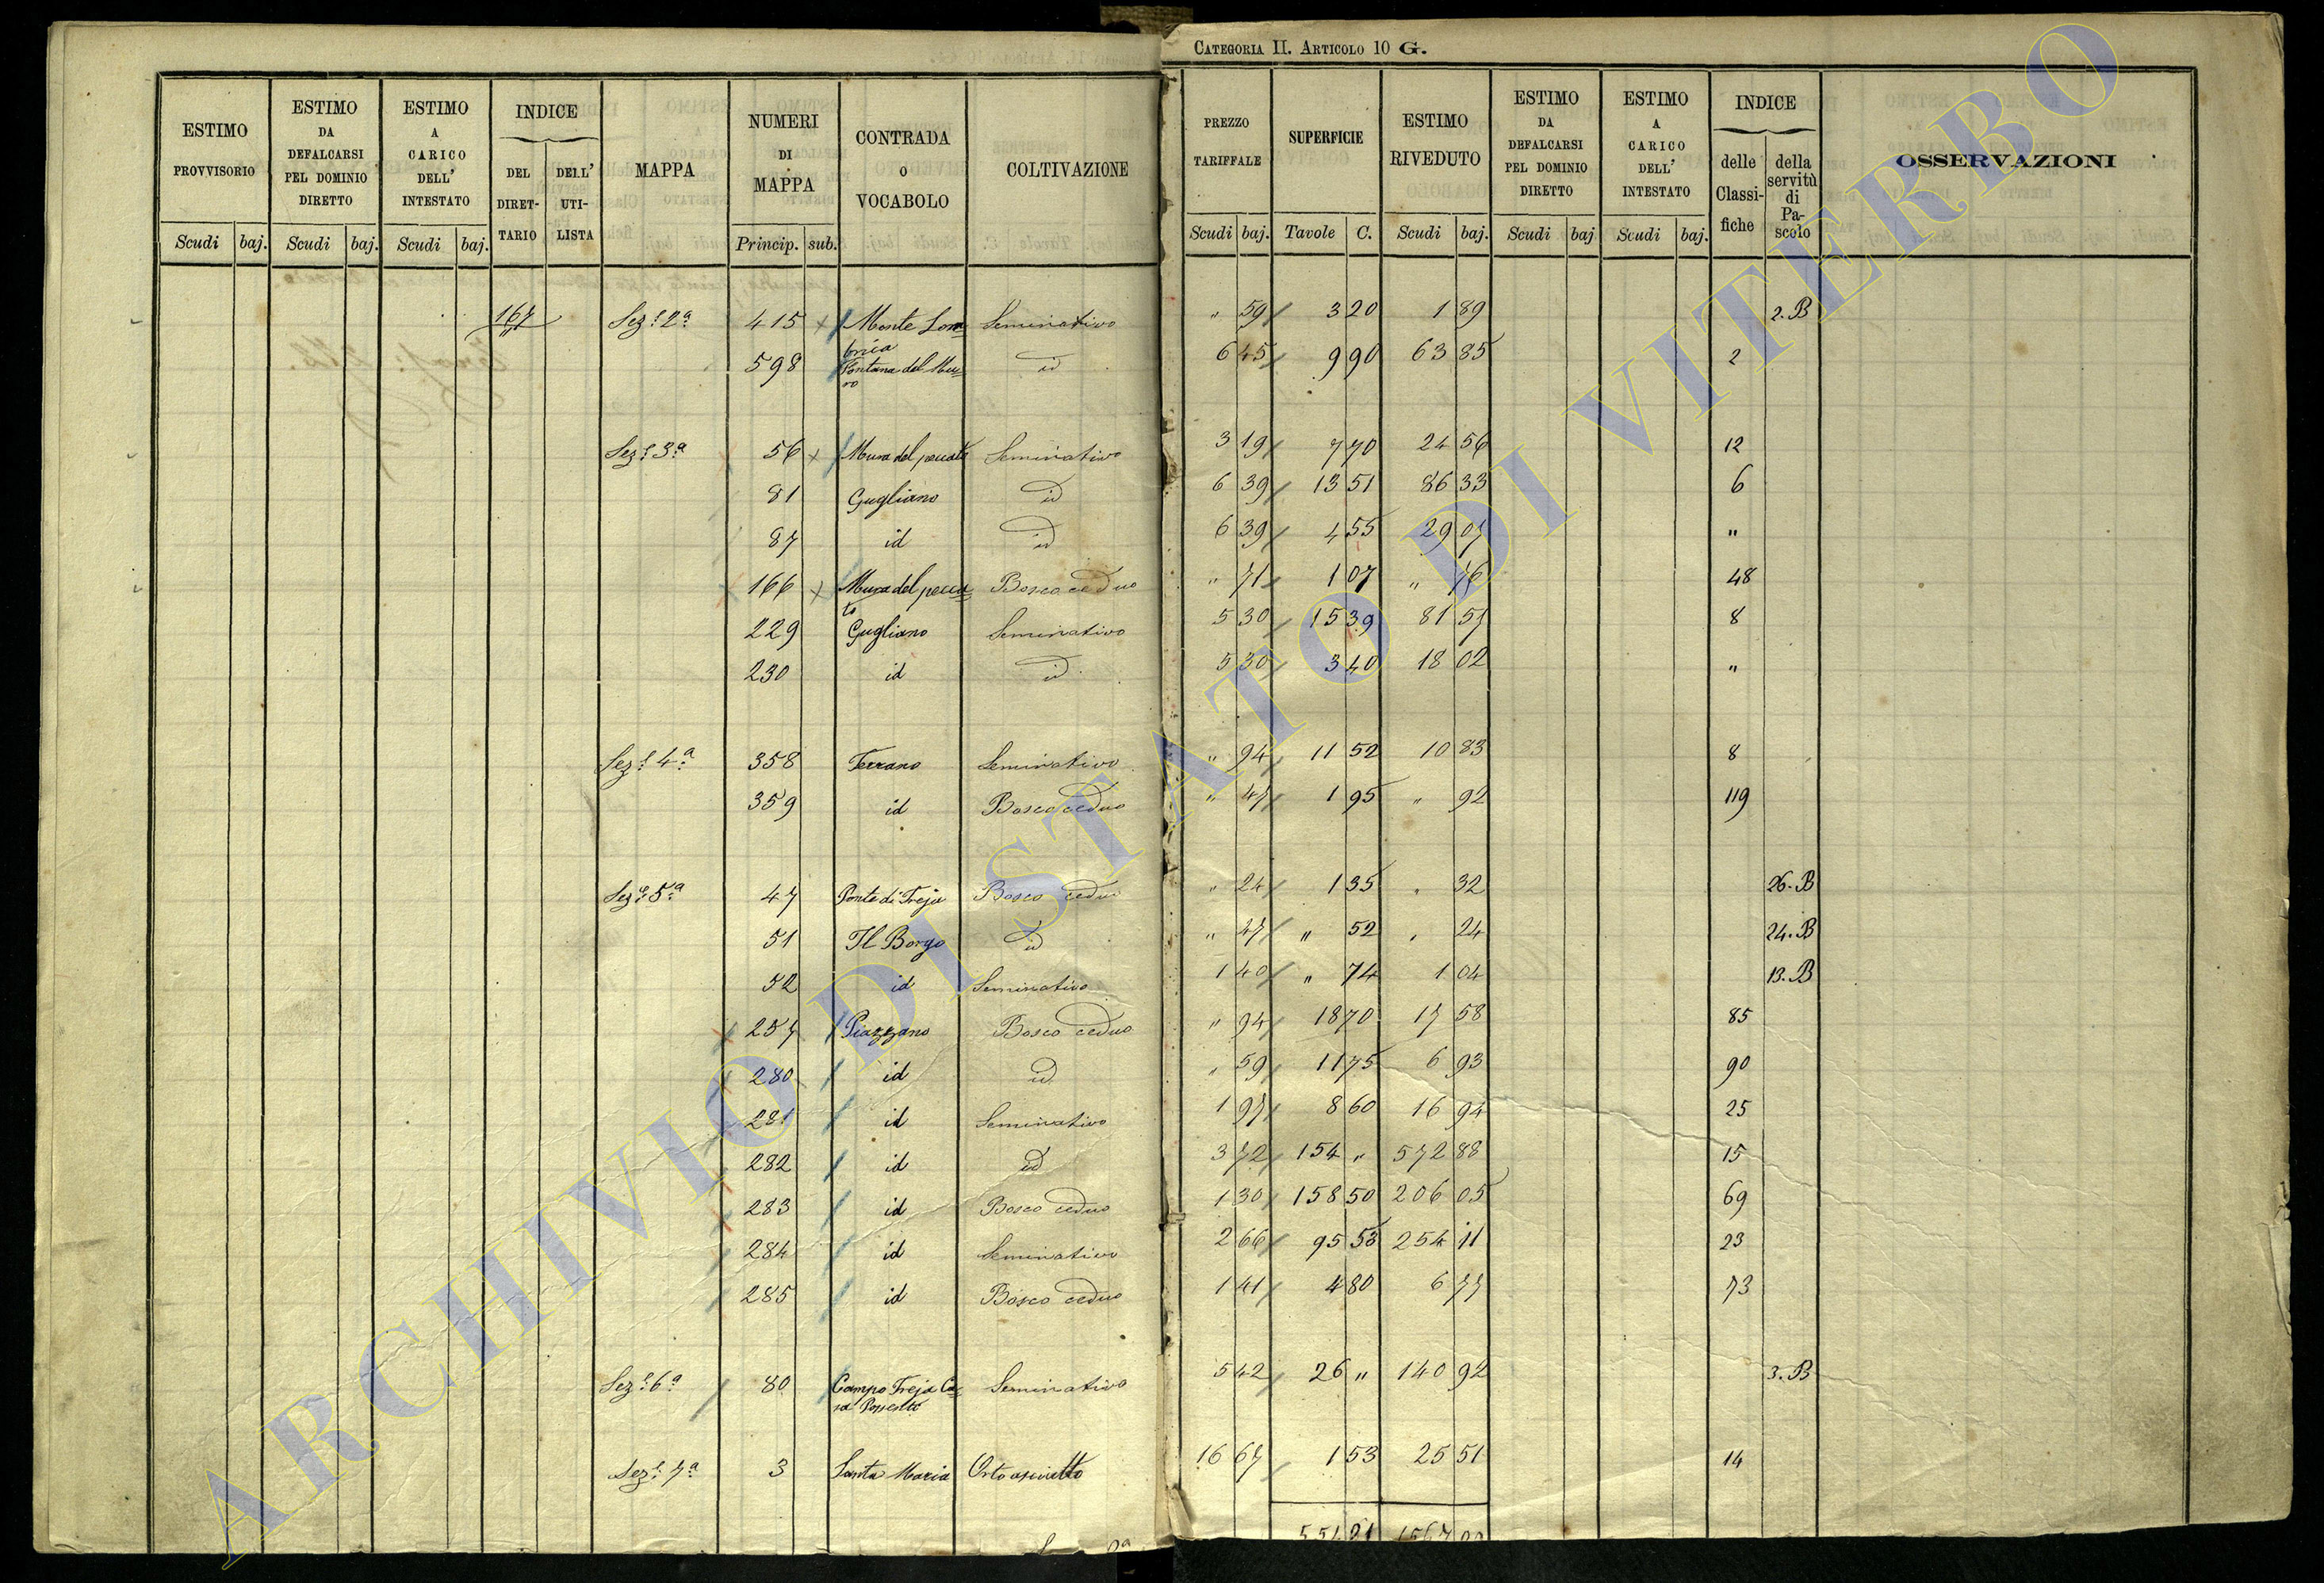 CATEGORIA II. ARTICOLO 10 G.
ESTIMO PROVVISORIO
ESTIMO DA DEFALCARSI PEL DOMINIO DIRETTO
ESTIMO A CARICO DELL' INTESTATO
INDICE
DEL DIRET-TARIO
DELL' UTI-LISTA
MAPPA
NUMERI DI MAPPA
CONTRADA O VOCABOLO
COLTIVAZIONE
PREZZO TARIFFALE
SUPERFICIE
ESTIMO RIVEDUTO
ESTIMO DA DEFALCARSI PEL DOMINIO DIRETTO
ESTIMO A CARICO DELL' INTESTATO
INDICE
delle Classi-fiche
della servitù di Pa-scolo
OSSERVAZIONI
Scudi baj. Scudi baj. Scudi baj. Princip. sub. Scudi baj. Tavole C. Scudi baj. Scudi baj Scudi baj.
167 Sez.e 2a 415 Monte Lom= Seminativo " 59 3 20 1 89 2.B
brica
598 Fontana del Mu= id 6 45 9 90 63 85 2
ro
Sez.e 3a 56 Mura del peccato Seminativo 3 19 7 70 24 56 12
81 Gugliano id 6 39 13 51 86 33 6
87 id id 6 39 4 55 29 07 "
166 Mura del pecca= Bosco ceduo " 71 1 07 " 76 48
to
229 Gugliano Seminativo 5 30 15 39 81 57 8
230 id id 5 30 3 40 18 02 "
Sez.e 4a 358 Terrano Seminativo " 94 11 52 10 83 8
359 id Bosco ceduo " 47 1 95 " 92 119
Sez.e 5a 47 Ponte di Treja Bosco ceduo " 24 1 35 " 32 26.B
51 Il Borgo id " 47 " 52 " 24 24.B
52 id Seminativo 1 40 " 74 1 04 13.B
257 Piazzano Bosco ceduo " 94 18 70 17 58 85
280 id id " 59 11 75 6 93 90
281 id Seminativo 1 97 8 60 16 94 25
282 id id 3 72 154 " 572 88 15
283 id Bosco ceduo 1 30 158 50 206 05 69
284 id Seminativo 2 66 95 53 254 11 23
285 id Bosco ceduo 1 41 4 80 6 77 73
Sez.e 6a 80 Campo Treja Ca= Seminativo 5 42 26 " 140 92 3.B
sa
Sez.e 7a 3 Santa Maria Orto asciutto 16 67 1 53 25 51 14
ARCHIVIO DI STATO DI VITERBO